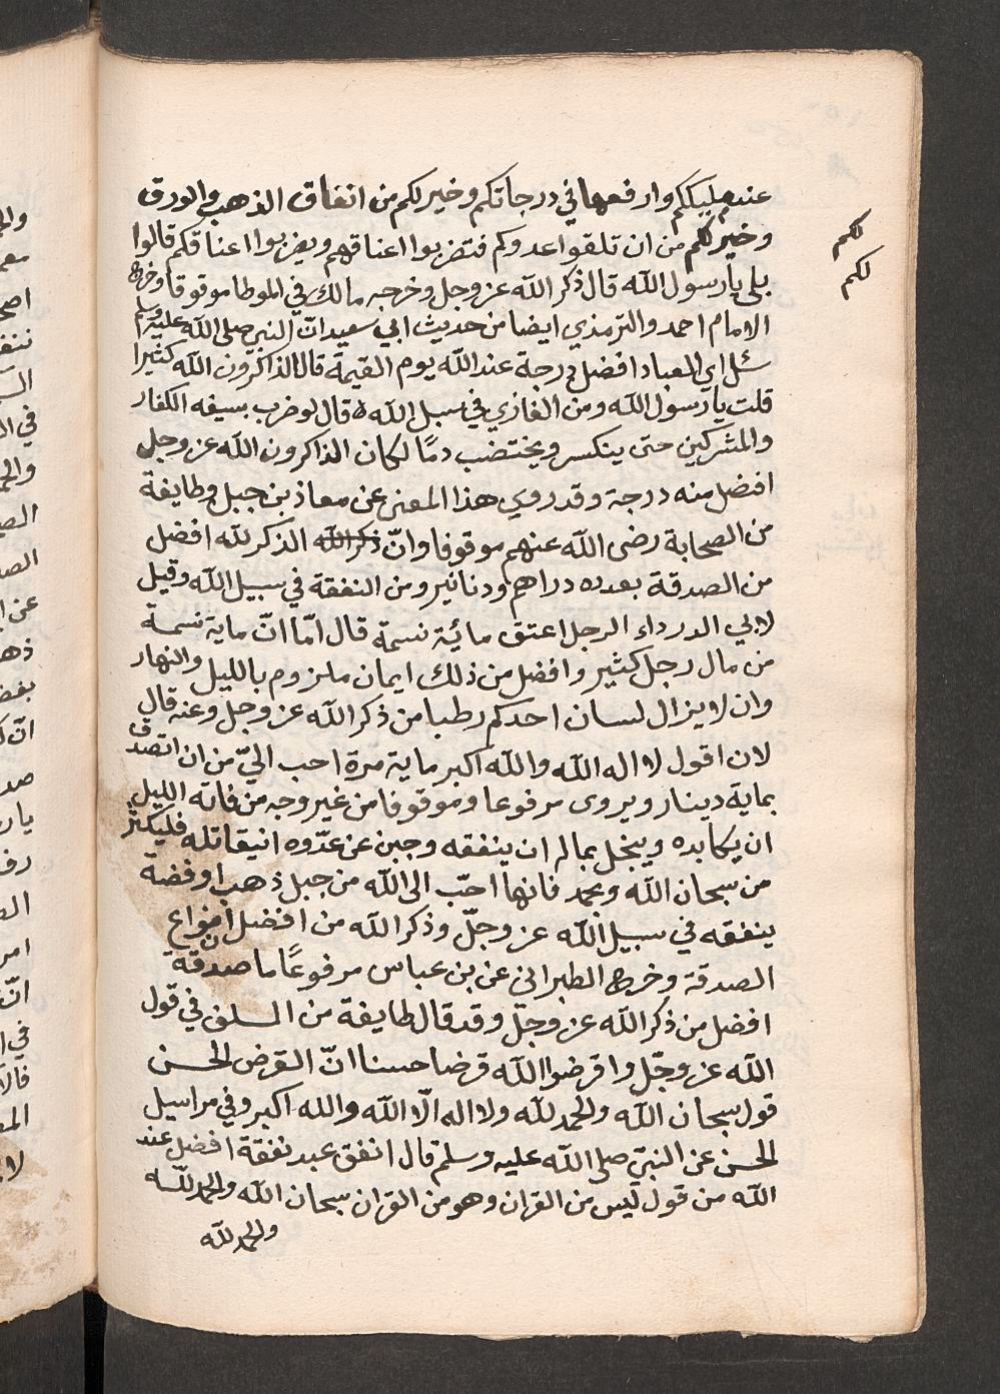 عند مليككم وارفعها في درجاتكم وخير لكم من انفاق الذهب والورق
وخير لكم من ان تلقوا عدوكم فتضربوا اعناقهم ويضربوا اعناقكم قالوا
لكم
لكم
بلى يا رسول الله قال ذكر الله عز وجل وخرجه مالك في الموطا موقوقا وخرج
الامام احمد والترمذي ايضا من حديث ابي سعيد ان النبي صلى الله عليه وسلم
سئل اي العباد افضل درجة عند الله يوم القيمة قال الذاكرون الله كثيرا
قلت يا رسول الله ومن الغازي في سبل الله قال لو ضرب بسيفه الكفار
والمشركين حتى ينكسر ويختضب دمًا لكان الذاكرون الله عز وجل
افضل منه درجة وقد روي هذا المعنى عن معاذ بن جبل وطايفة
من الصحابة رضى الله عنهم موقوفا وانّ ذكر الله الذكر لله افضل
من الصدقة بعدده دراهم ودنانير ومن النفقة في سبيل الله وقيل
لابي الدرداء الرجل اعتق مائة نسمة قال امّا انّ ماية نسمة
من مال رجل كثير وافضل من ذلك ايمان ملزوم بالليل والنهار
وان لا يزال لسان احدكم رطبا من ذكر الله عز وجل وعنه قال
لان اقول لا اله الله والله اكبر ماية مرة احب اليّ من ان اتصدق
بماية دينار ويروى مرفوعا وموقوفا من غير وجه من فاته الليل
ان يكابده وبخل بماله ان ينفقه وجبن عن عدّوه ان يقاتله فليكثر
من سبحان الله وبحمد فانها احبّ الى الله من جبل ذهب او فضة
ينفقه في سبيل الله عز وجلّ وذكر الله من افضل انواع
الصدقة وخرج الطبراني عن بن عباس مرفوعًا ما صدقة
افضل من ذكر الله عز وجلّ وقد قال طايفة من السلف في قول
الله عز وجّل واقرضوا الله قرضا حسنا انّ القرض الحسن
قول سبحان الله والحمد لله ولا اله الّا الله والله اكبر وفي مراسيل
الحسن عن النبيّ صلى الله عليه وسلم قال انفق عبد نفقة افضل عند
الله من قول ليس من القران وهو من القران سبحان الله والحمد لله
والحمد لله